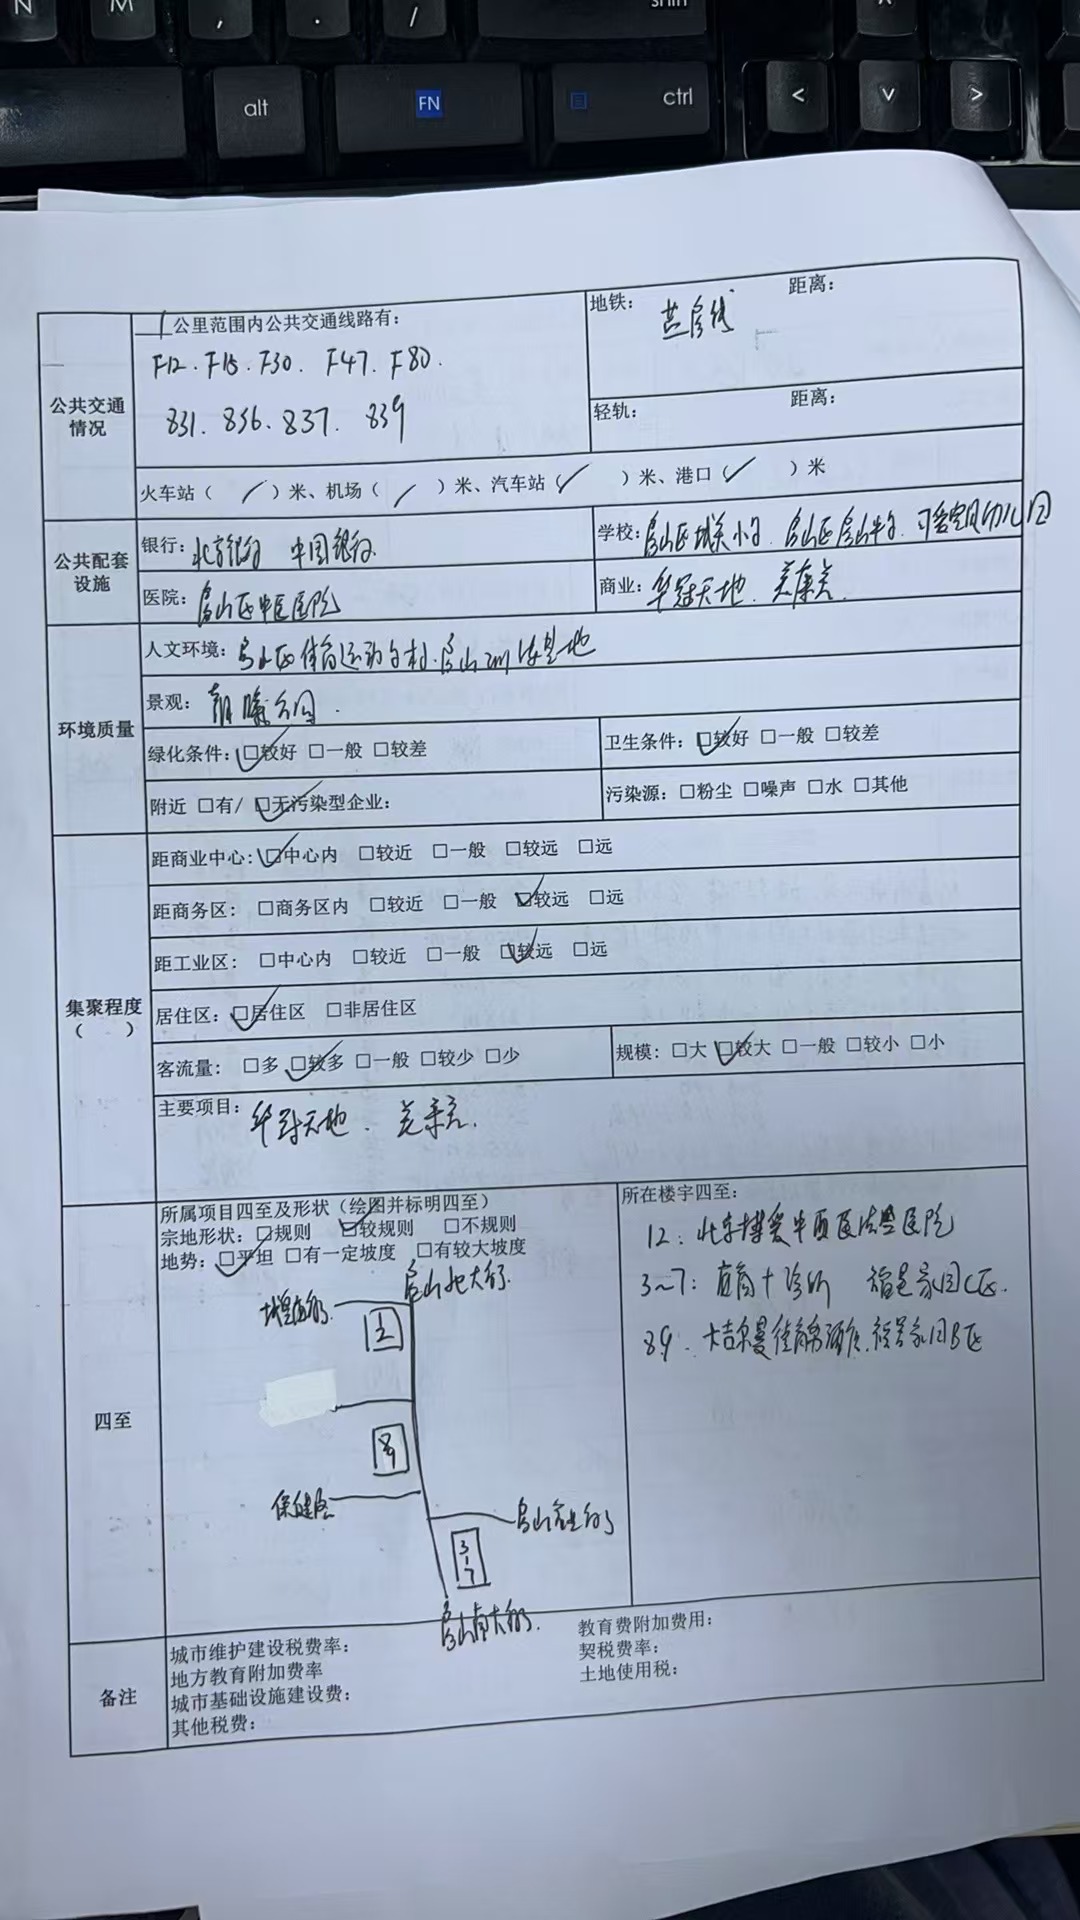 N M , . / shift ^
alt FN ctrl < v >
1公里范围内公共交通线路有：
地铁： 燕房线 距离：
F12. F15. F30. F47. F80.
公共交通情况
831. 836、837. 839
轻轨： 距离：
火车站（ / ）米、机场（ / ）米、汽车站（ / ）米、港口（ / ）米
公共配套设施
银行：北京银行 中国银行
学校：房山区城关小学.
医院：房山区中医医院
商业：华冠天地.
环境质量
人文环境：
景观：朝曦公园.
绿化条件：☑较好 □一般 □较差
卫生条件：☑较好 □一般 □较差
附近 □有/ ☑无污染型企业：
污染源：□粉尘 □噪声 □水 □其他
集聚程度
（ ）
距商业中心：☑中心内 □较近 □一般 □较远 □远
距商务区： □商务区内 □较近 □一般 ☑较远 □远
距工业区： □中心内 □较近 □一般 ☑较远 □远
居住区：☑居住区 □非居住区
客流量： □多 ☑较多 □一般 □较少 □少
规模：□大 ☑较大 □一般 □较小 □小
主要项目：华冠天地.
四至
所属项目四至及形状（绘图并标明四至）
宗地形状：□规则 ☑较规则 □不规则
地势：☑平坦 □有一定坡度 □有较大坡度
房山北大街.
保健路
3-7
房山南大街.
所在楼宇四至：
12：北京博爱中西医结合医院
3~7： 诊所 福星家园C区.
89：
备注
城市维护建设税费率：
教育费附加费用：
地方教育附加费率
契税费率：
城市基础设施建设费：
土地使用税：
其他税费：